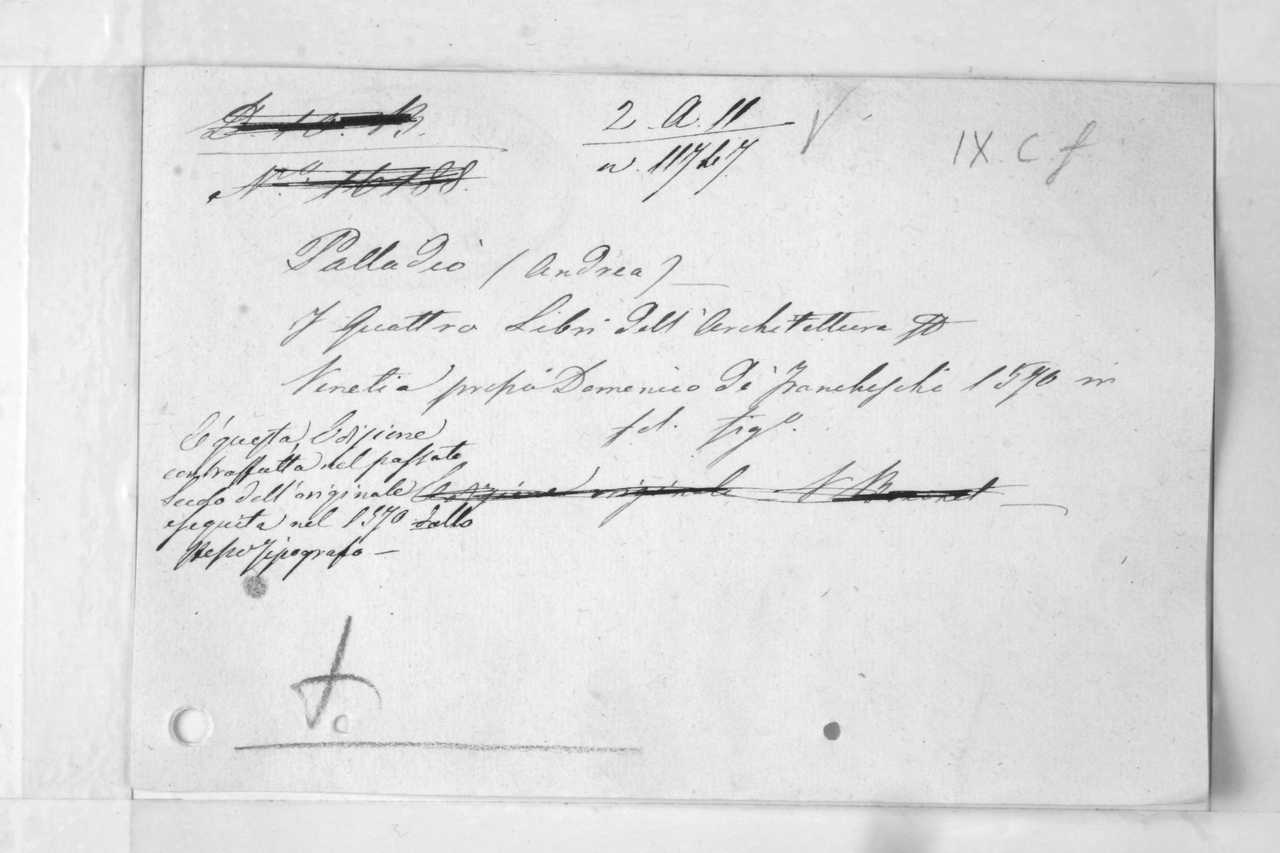 2. A. 11
IX. C f
Palladio (Andrea)
I Quattro Libri dell'Architettura
Venetia presso Domenico de' Franceschi 1570 in
fol. figº.
È questa Edizione
contraffatta nel passato
Secolo dell'originale
eseguita nel 1570 dallo
stesso Tipografo —